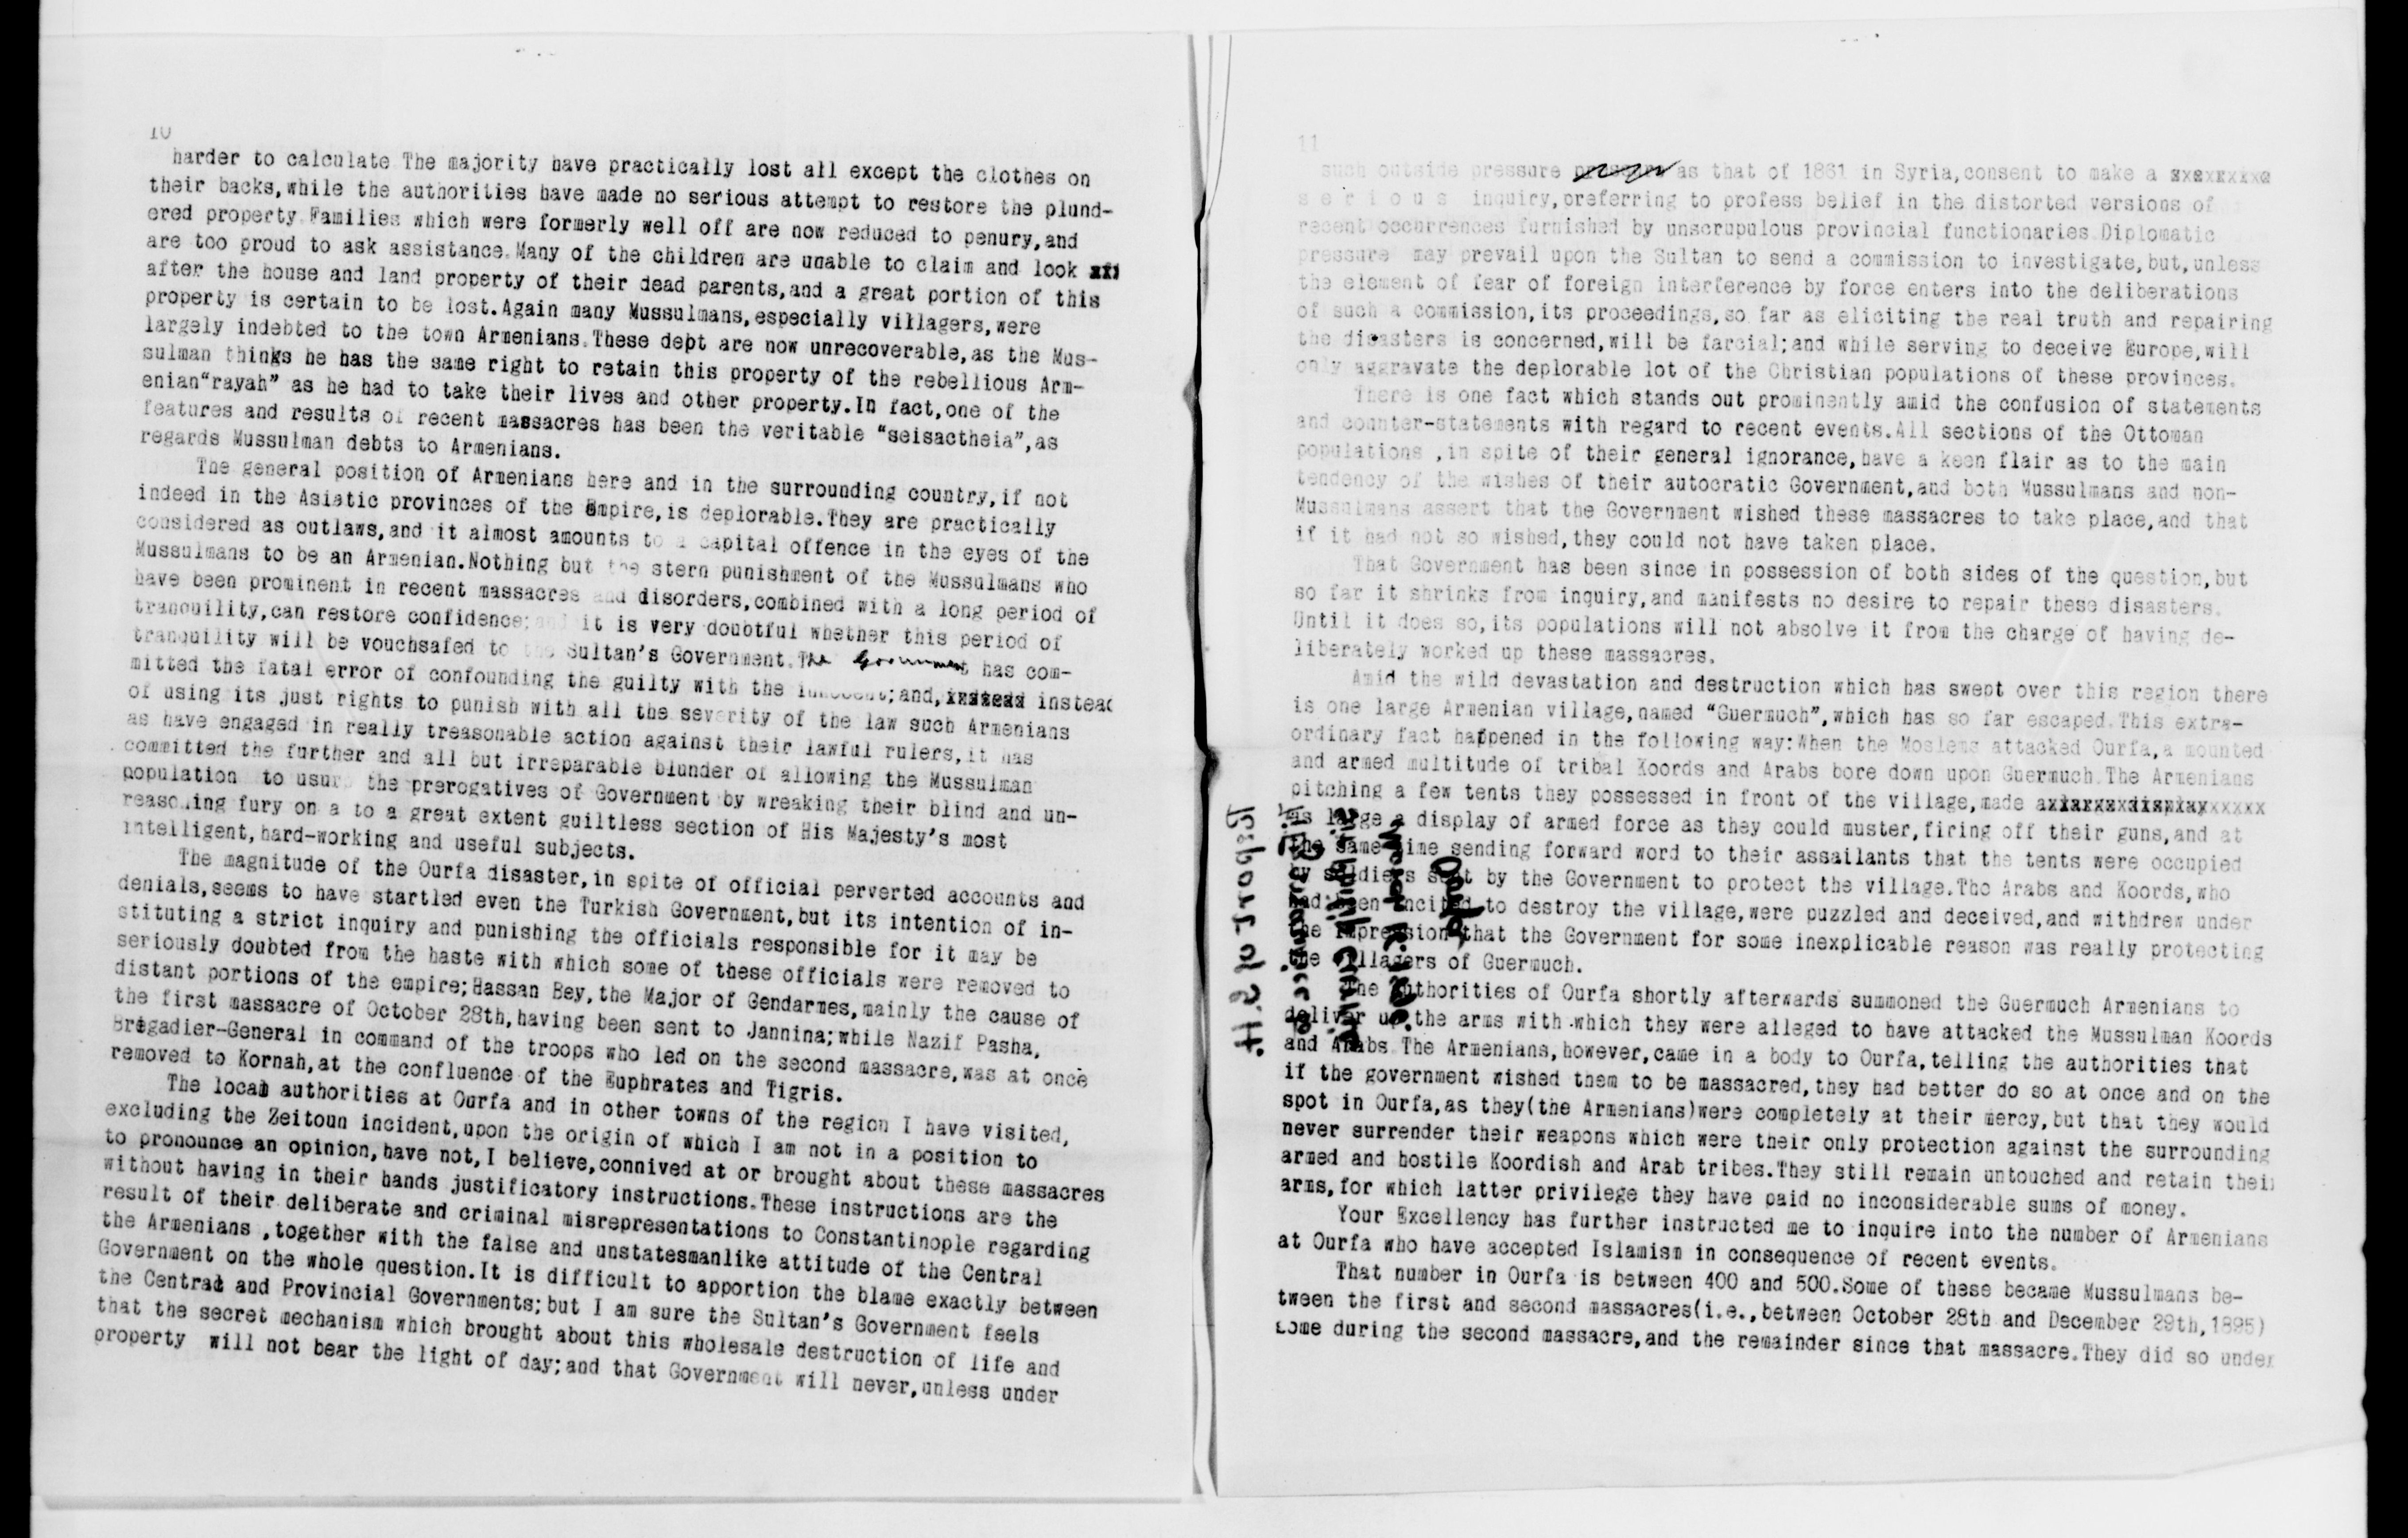 10
harder to calculate The majority have practically lost all except the clothes on
their backs,while the authorities have made no serious attempt to restore the plund-
ered property.Families which were formerly well off are now reduced to penury,and
are too proud to ask assistance.Many of the children are unable to claim and look xxx
after the house and land property of their dead parents,and a great portion of this
property is certain to be lost.Again many Mussulmans,especially villagers,were
largely indebted to the town Armenians.These dept are now unrecoverable,as the Mus-
sulman thinks he has the same right to retain this property of the rebellious Arm-
enian"rayah" as he had to take their lives and other property.In fact,one of the
features and results of recent massacres has been the veritable "seisactheia",as
regards Mussulman debts to Armenians.
The general position of Armenians here and in the surrounding country,if not
indeed in the Asiatic provinces of the Empire,is deplorable.They are practically
considered as outlaws,and it almost amounts to a capital offence in the eyes of the
Mussulmans to be an Armenian.Nothing but the stern punishment of the Mussulmans who
have been prominent in recent massacres and disorders,combined with a long period of
tranquility,can restore confidence;and it is very doubtful whether this period of
tranquility will be vouchsafed to the Sultan's Government.The Government has com-
mitted the fatal error of confounding the guilty with the innocent;and,instead instead
of using its just rights to punish with all the severity of the law such Armenians
as have engaged in really treasonable action against their lawful rulers,it has
committed the further and all but irreparable blunder of allowing the Mussulman
population to usurp the prerogatives of Government by wreaking their blind and un-
reasoning fury on a to a great extent guiltless section of His Majesty's most
intelligent,hard-working and useful subjects.
The magnitude of the Ourfa disaster,in spite of official perverted accounts and
denials,seems to have startled even the Turkish Government,but its intention of in-
stituting a strict inquiry and punishing the officials responsible for it may be
seriously doubted from the haste with which some of these officials were removed to
distant portions of the empire;Hassan Bey,the Major of Gendarmes,mainly the cause of
the first massacre of October 28th,having been sent to Jannina;while Nazif Pasha,
Bregadier-General in command of the troops who led on the second massacre,was at once
removed to Kornah,at the confluence of the Euphrates and Tigris.
The local authorities at Ourfa and in other towns of the region I have visited,
excluding the Zeitoun incident,upon the origin of which I am not in a position to
to pronounce an opinion,have not,I believe,connived at or brought about these massacres
without having in their hands justificatory instructions.These instructions are the
result of their deliberate and criminal misrepresentations to Constantinople regarding
the Armenians ,together with the false and unstatesmanlike attitude of the Central
Government on the whole question.It is difficult to apportion the blame exactly between
the Central and Provincial Governments;but I am sure the Sultan's Government feels
that the secret mechanism which brought about this wholesale destruction of life and
property will not bear the light of day;and that Government will never,unless under
11
such outside pressure as that of 1861 in Syria,consent to make a
s e r i o u s inquiry,preferring to profess belief in the distorted versions of
recent occurrences furnished by unscrupulous provincial functionaries.Diplomatic
pressure may prevail upon the Sultan to send a commission to investigate,but,unless
the element of fear of foreign interference by force enters into the deliberations
of such a commission,its proceedings,so far as eliciting the real truth and repairing
the disasters is concerned,will be farcial;and while serving to deceive Europe,will
only aggravate the deplorable lot of the Christian populations of these provinces.
There is one fact which stands out prominently amid the confusion of statements
and counter-statements with regard to recent events.All sections of the Ottoman
populations ,in spite of their general ignorance,have a keen flair as to the main
tendency of the wishes of their autocratic Government,and both Mussulmans and non-
Mussulmans assert that the Government wished these massacres to take place,and that
if it had not so wished,they could not have taken place.
That Government has been since in possession of both sides of the question,but
so far it shrinks from inquiry,and manifests no desire to repair these disasters.
Until it does so,its populations will not absolve it from the charge of having de-
liberately worked up these massacres.
Amid the wild devastation and destruction which has swept over this region there
is one large Armenian village,named "Guermuch",which has so far escaped.This extra-
ordinary fact happened in the following way:When the Moslems attacked Ourfa,a mounted
and armed multitude of tribal Koords and Arabs bore down upon Guermuch.The Armenians
pitching a few tents they possessed in front of the village,made
as large a display of armed force as they could muster,firing off their guns,and at
the same time sending forward word to their assailants that the tents were occupied
by soldiers sent by the Government to protect the village.The Arabs and Koords,who
had been incited to destroy the village,were puzzled and deceived,and withdrew under
the impression that the Government for some inexplicable reason was really protecting
the villagers of Guermuch.
The authorities of Ourfa shortly afterwards summoned the Guermuch Armenians to
deliver up the arms with which they were alleged to have attacked the Mussulman Koords
and Arabs The Armenians,however,came in a body to Ourfa,telling the authorities that
if the government wished them to be massacred,they had better do so at once and on the
spot in Ourfa,as they(the Armenians)were completely at their mercy,but that they would
never surrender their weapons which were their only protection against the surrounding
armed and hostile Koordish and Arab tribes.They still remain untouched and retain their
arms,for which latter privilege they have paid no inconsiderable sums of money.
Your Excellency has further instructed me to inquire into the number of Armenians
at Ourfa who have accepted Islamism in consequence of recent events.
That number in Ourfa is between 400 and 500.Some of these became Mussulmans be-
tween the first and second massacres(i.e.,between October 28th and December 29th,1895)
some during the second massacre,and the remainder since that massacre.They did so under
Report of H.
Ourfa